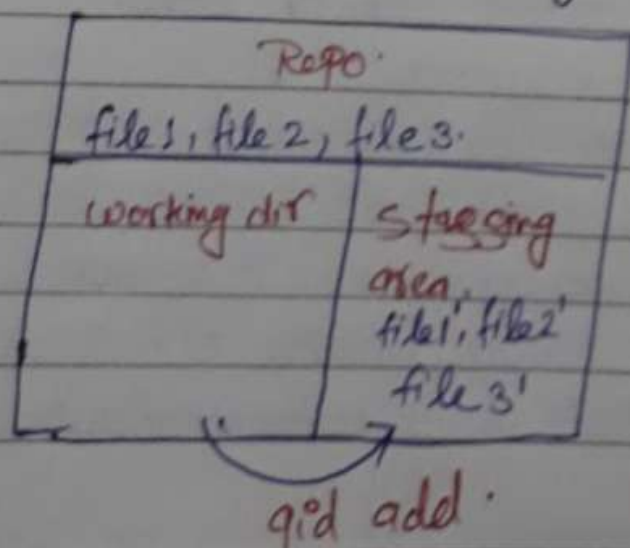 Repo.
file1, file2, file3.
working dir
Stagging
area,
file1', file2'
file 3'
gid add .